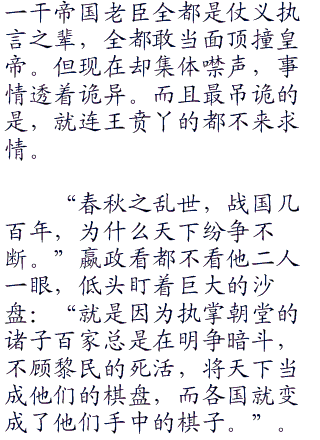 一干帝国老臣全都是仗义执
言之辈，全都敢当面顶撞皇
帝。但现在却集体噤声，事
情透着诡异。而且最吊诡的
是，就连王贲丫的都不来求
情。
“春秋之乱世，战国几
百年，为什么天下纷争不
断。”嬴政看都不看他二人
一眼，低头盯着巨大的沙
盘：“就是因为执掌朝堂的
诸子百家总是在明争暗斗，
不顾黎民的死活，将天下当
成他们的棋盘，而各国就变
成了他们手中的棋子。”。